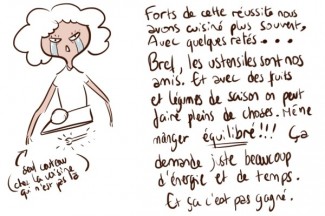 Forts de cette réussite nous
avons cuisiné plus souvent.
Avec quelques ratés...
Bref, les ustensiles sont nos
amis. Et avec des fruits
et légumes de saison on peut
faire pleins de choses. Même
manger équilibré!!! Ça
demande juste beaucoup
d'énergie et de temps.
Et ça c'est pas gagné.
seul couteau
de la cuisine
qui n'est pas là